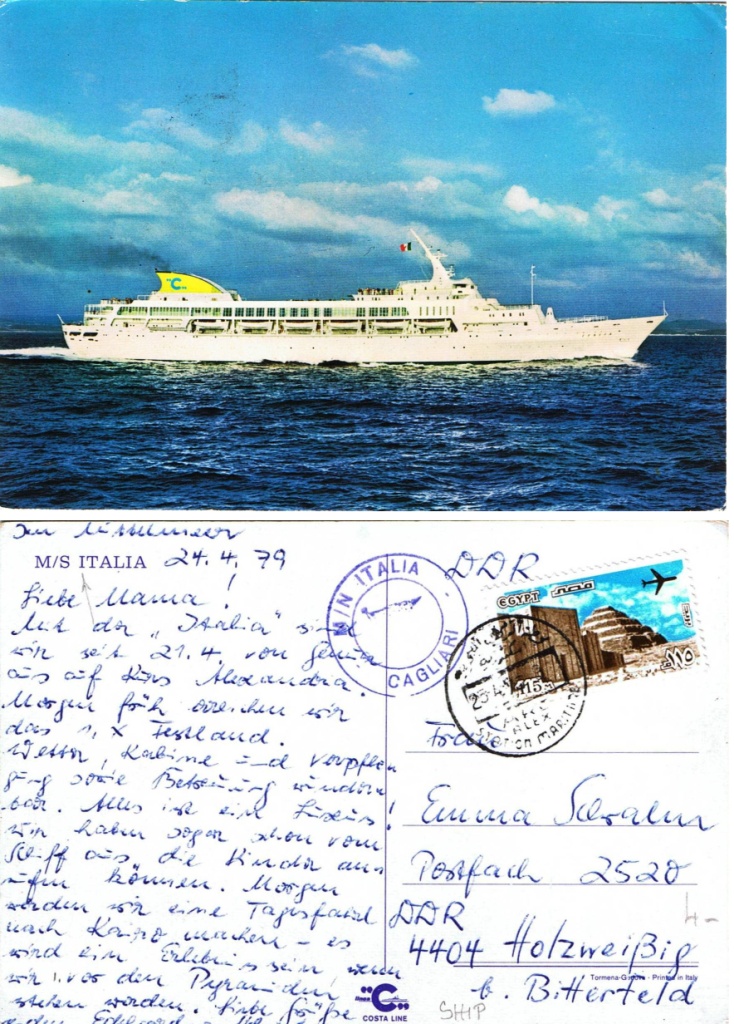 C
Im Mittelmeer
M/S ITALIA 24.4.79
Liebe Mama!
Mit der „Italia" sind
wir seit 21.4. von Genua
aus auf Kurs Alexandria.
Morgen früh erreichen wir
das 1. x Festland.
Wetter, Kabine und Verpfle
gung sowie Betreuung wunder
bar. Alles ist ein Luxus!
Wir haben sogar schon vom
Schiff aus die Kinder an
rufen können. Morgen
werden wir eine Tagesfahrt
nach Kairo machen - es
wird ein Erlebnis sein, wenn
wir vor den Pyramiden
stehen werden. Liebe Grüße
M/N ITALIA
CAGLIARI
DDR
EGYPT مصر
١١٥
115
25.4
ALEX
STATION MARITIME
Frau
Emma Schramm
Postfach 2520
DDR
4404 Holzweißig
b. Bitterfeld
4-
Tormena-Genova - Printed in Italy
C
COSTA LINE
SHIP